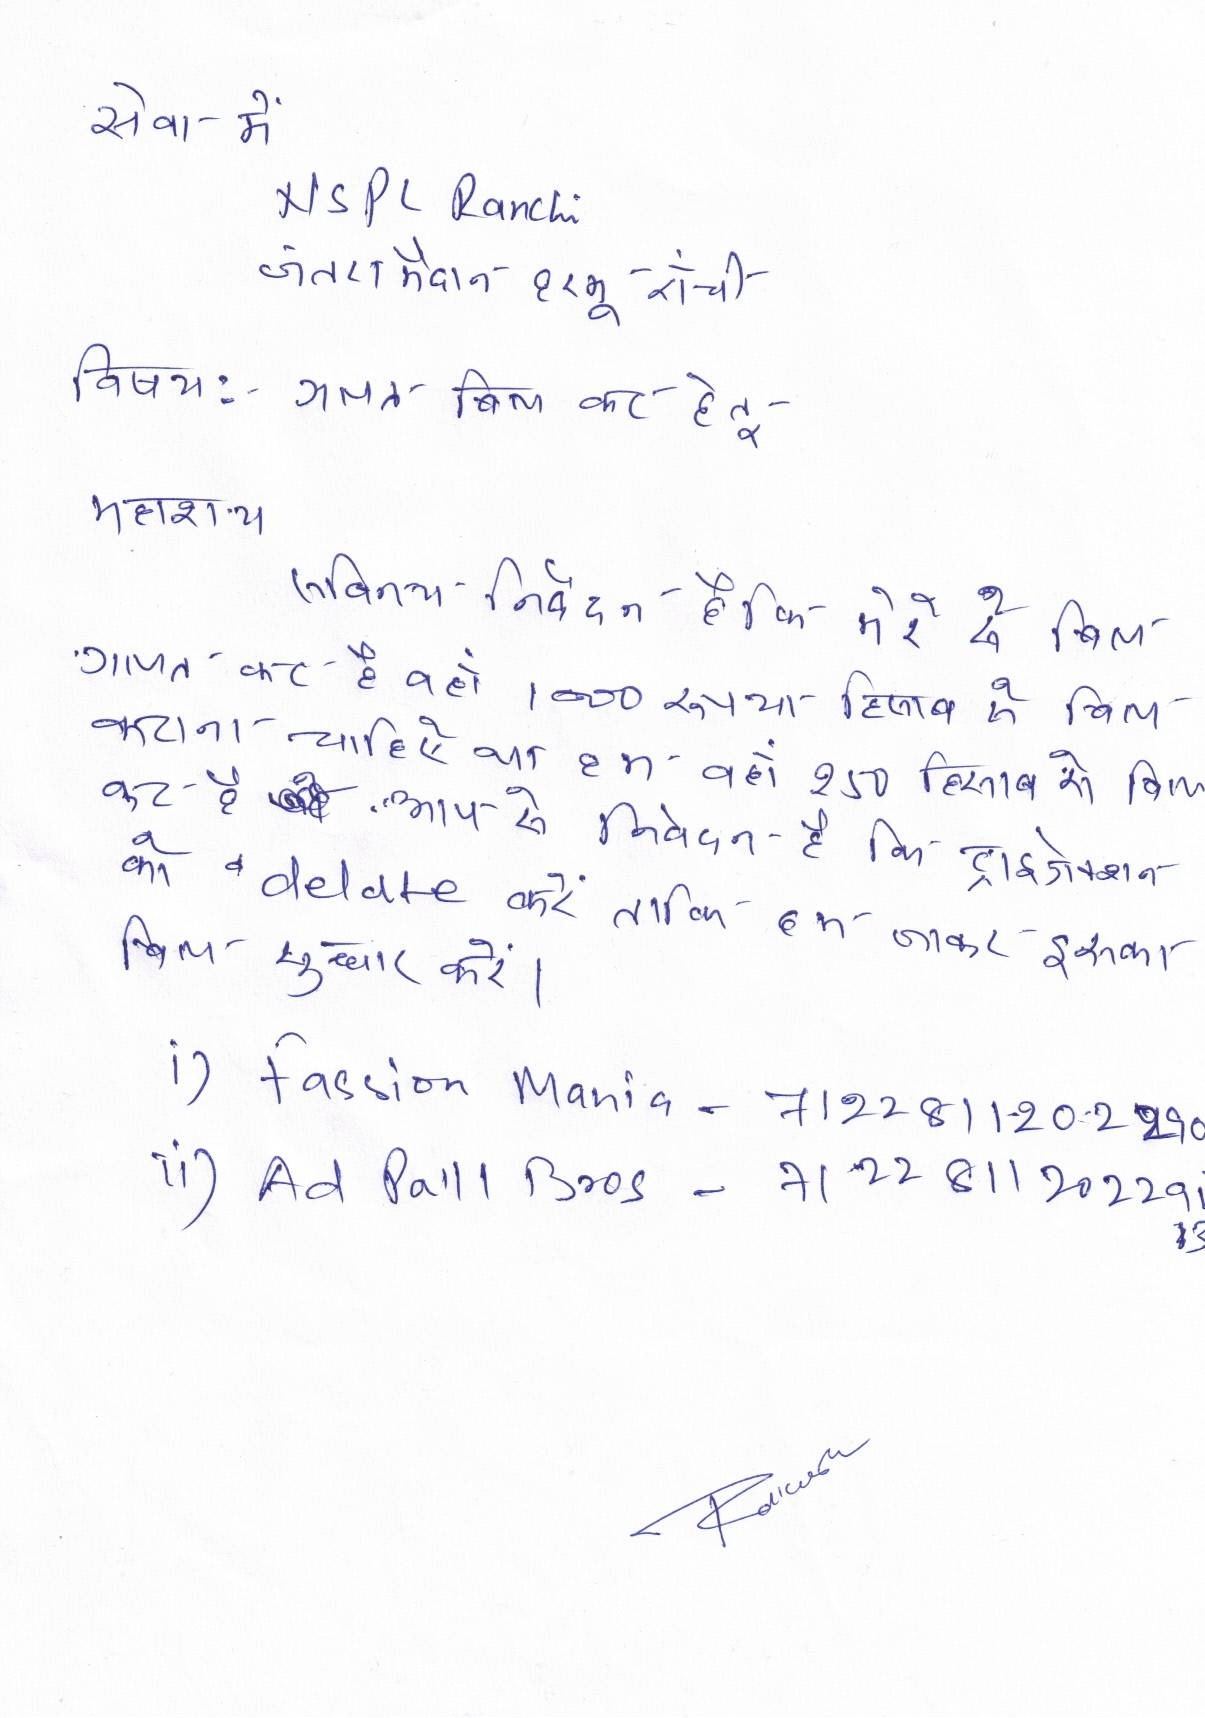 सेवा में
NSPL Ranchi
जतरा मैदान हरमू राँची
विषय:- गलत बिल कट हेतू
महाशय
सविनय निवेदन है कि मेरे से बिल
गलत कट है वहाँ 1000 रूपया हिसाब से बिल
कटाना चाहिऐ था हम वहाँ 250 हिसाब से बिल
कट है आप से निवेदन है कि ट्राइजेक्शन
को delate करें ताकि हम जाकर इसका
बिल सुधार करें।
i) Fassion Mania - 71228112022
ii) Ad Pa111 Bros - 712281120229
13